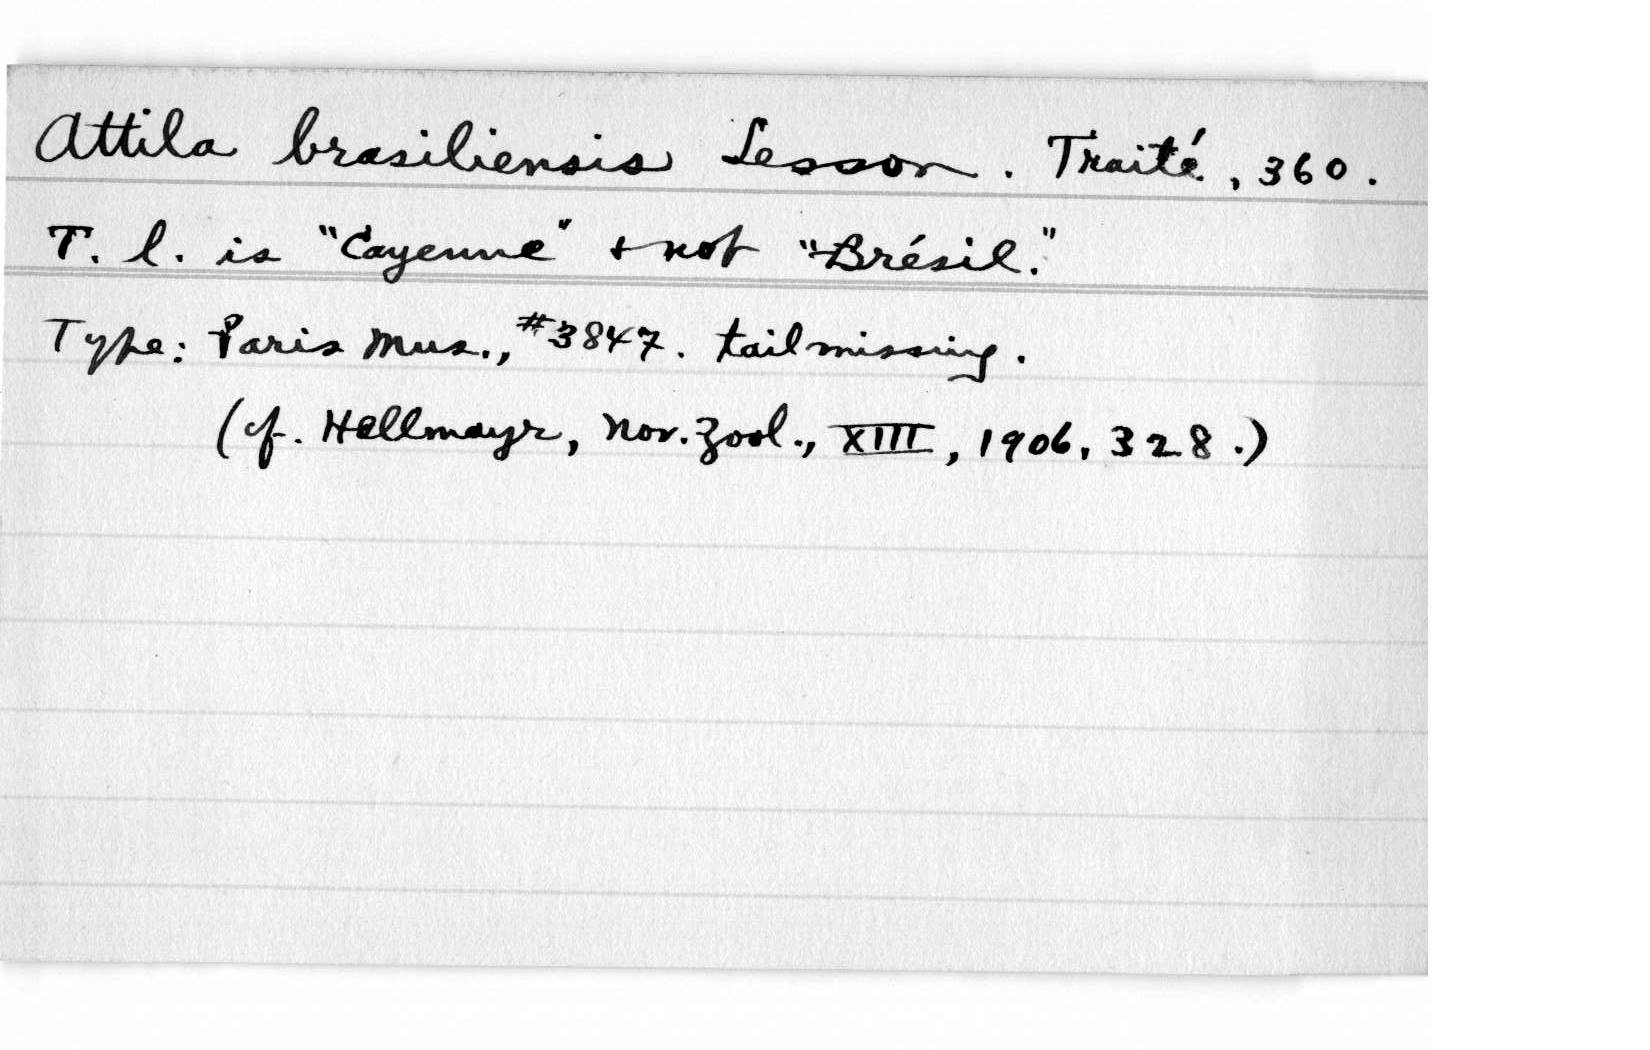 Attila brasiliensis Lesson. Traité, 360.
T. l. is "Cayenne" + not "Brésil."
Type: Paris Mus., #3847. tail missing.
(cf. Hellmayr, Nov. Zool., XIII, 1906, 328.)